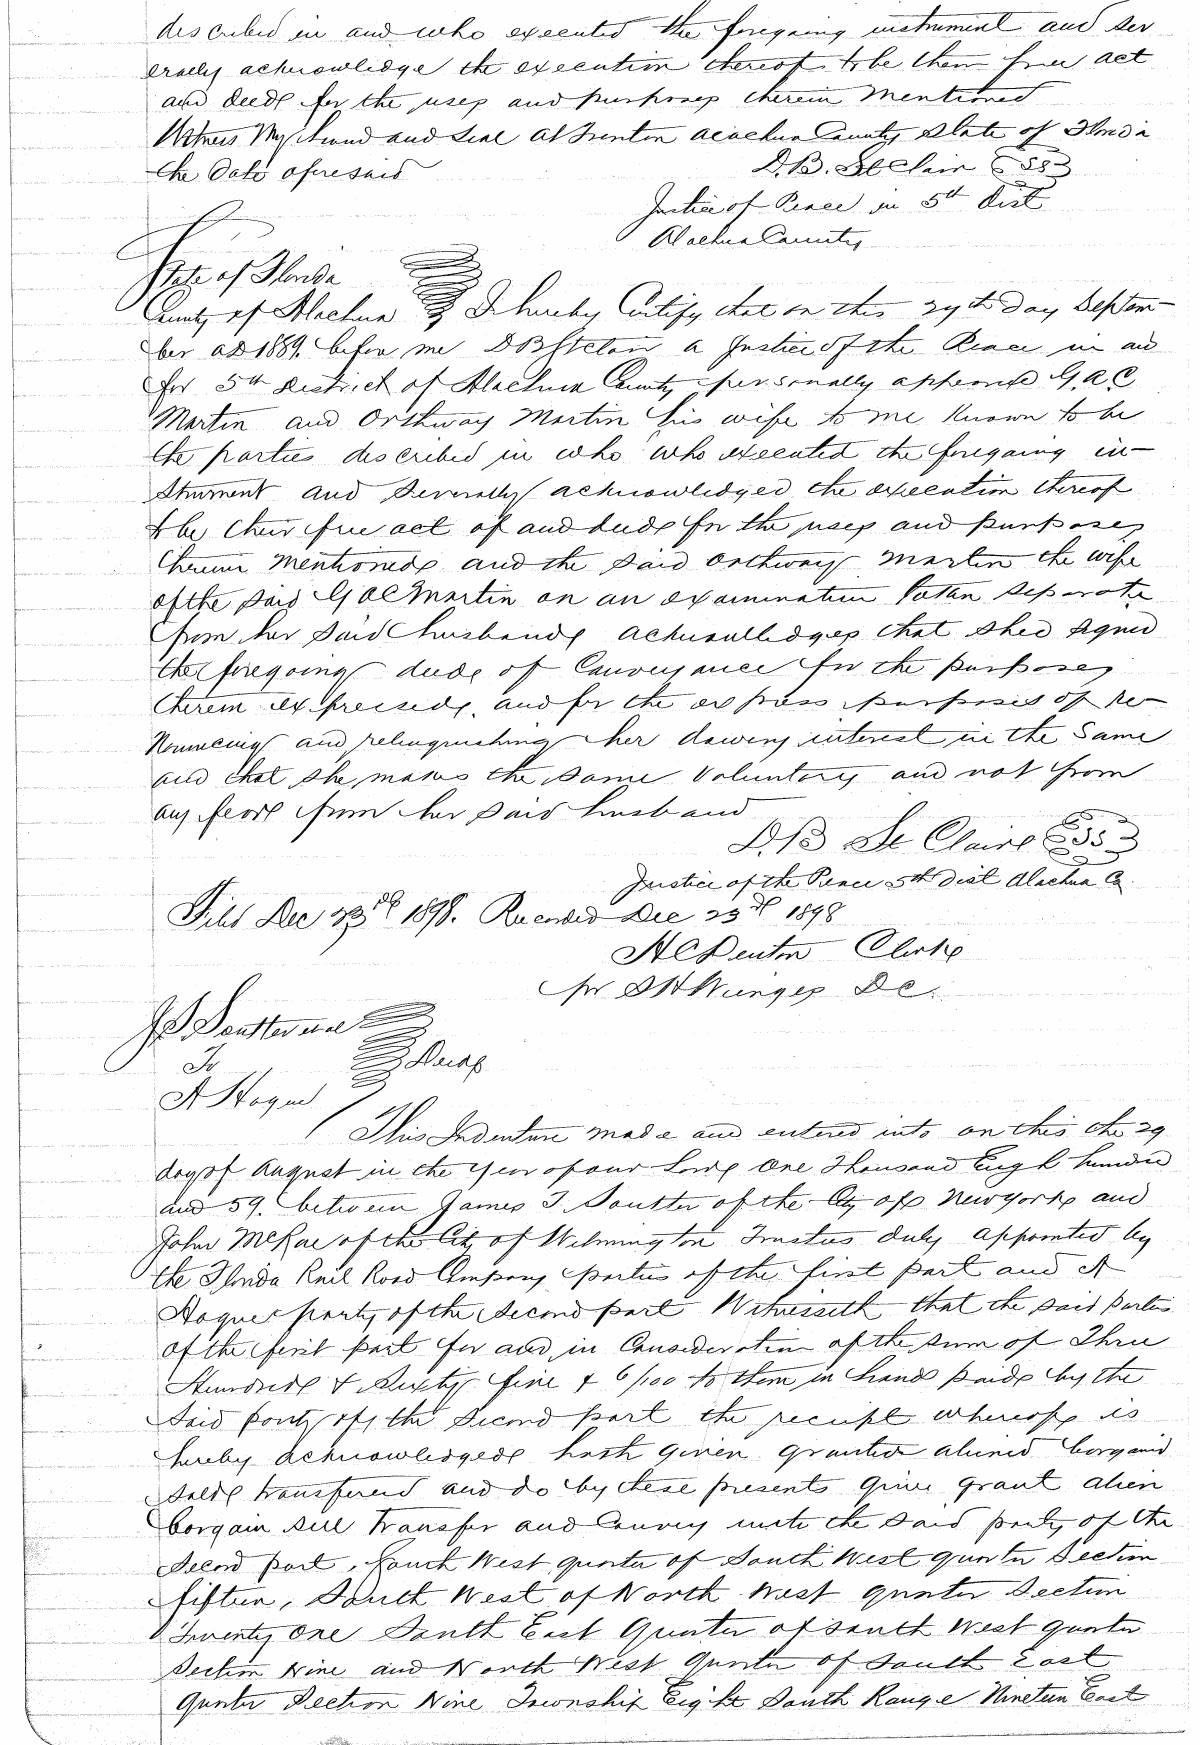 described in and who executed the foregoing instrument and sev
erally acknowledge the execution thereof to be them free act
and deeds for the uses and purposes therein mentioned
Witness My hand and seal at Trenton Alachua County State of Florida
the date aforesaid
D.B. St Clair
Justice of Peace in 5th Dist
Alachua County
State of Florida
County of Alachua I hereby Certify that on this 29th day Septem-
ber AD 1889. before me D B a Justice of the Peace in and
for 5th District of Alachua County personally appeared G.A.C
Martin and Orthway Martin his wife to me Known to be
the parties described in who who executed the foregoing in-
strument and severally acknowledged the execution thereof
to be their free act of and deeds for the uses and purposes
therein mentioned and the said Orthway Martin the wife
of the said G A C Martin on an examination taken separate
from her said husbands acknowledges that shed signed
the foregoing deeds of Conveyance for the purposes
therein expressed, and for the express purposes of re-
nouncing and relinquishing her dowery interest in the same
and that she makes the same Voluntary and not from
any fear from her said husband
D.B St Claire
Justice of the Peace 5th dist Alachua Co.
Filed Dec 23rd 1898. Recorded Dec 23rd 1898
H C Denton Clerk
per D C.
J Soutter
To Deed
A Hogue
This Indenture made and entered into on this the 29
day of August in the year of our Lord One Thousand Eight hundred
and 59. between James T. Soutter of the City of New york and
John McRae of the City of Wilmington Trustees duly appointed by
the Florida Rail Road Company parties of the first part and A
Hogue party of the second part Witnesseth that the said parties
of the first part for and in Consideration of the sum of Three
Hundred & Sixty five & 6/100 to them in hand paid by the
said party of the second part the receipt whereof is
hereby acknowledged hath given granted aliened borgained
sold transfered and do by these presents give grant alien
borgain sell transfer and convey unto the said party of the
second part, South West quarter of South West quarter Section
fifteen, South West of North West quarter Section
Twenty One South East Quarter of South West quarter
Section Nine and North West quarter of South East
quarter Section Nine Township Eight South Range Nineteen East